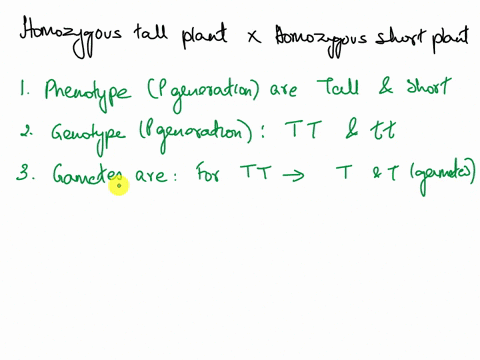 Homozygous tall plant x Homozygous short plant
1. Phenotype (P generation) are Tall & short
2. Genotype (P generation) : TT & tt
3. Gametes are : For TT → T & T (gametes)